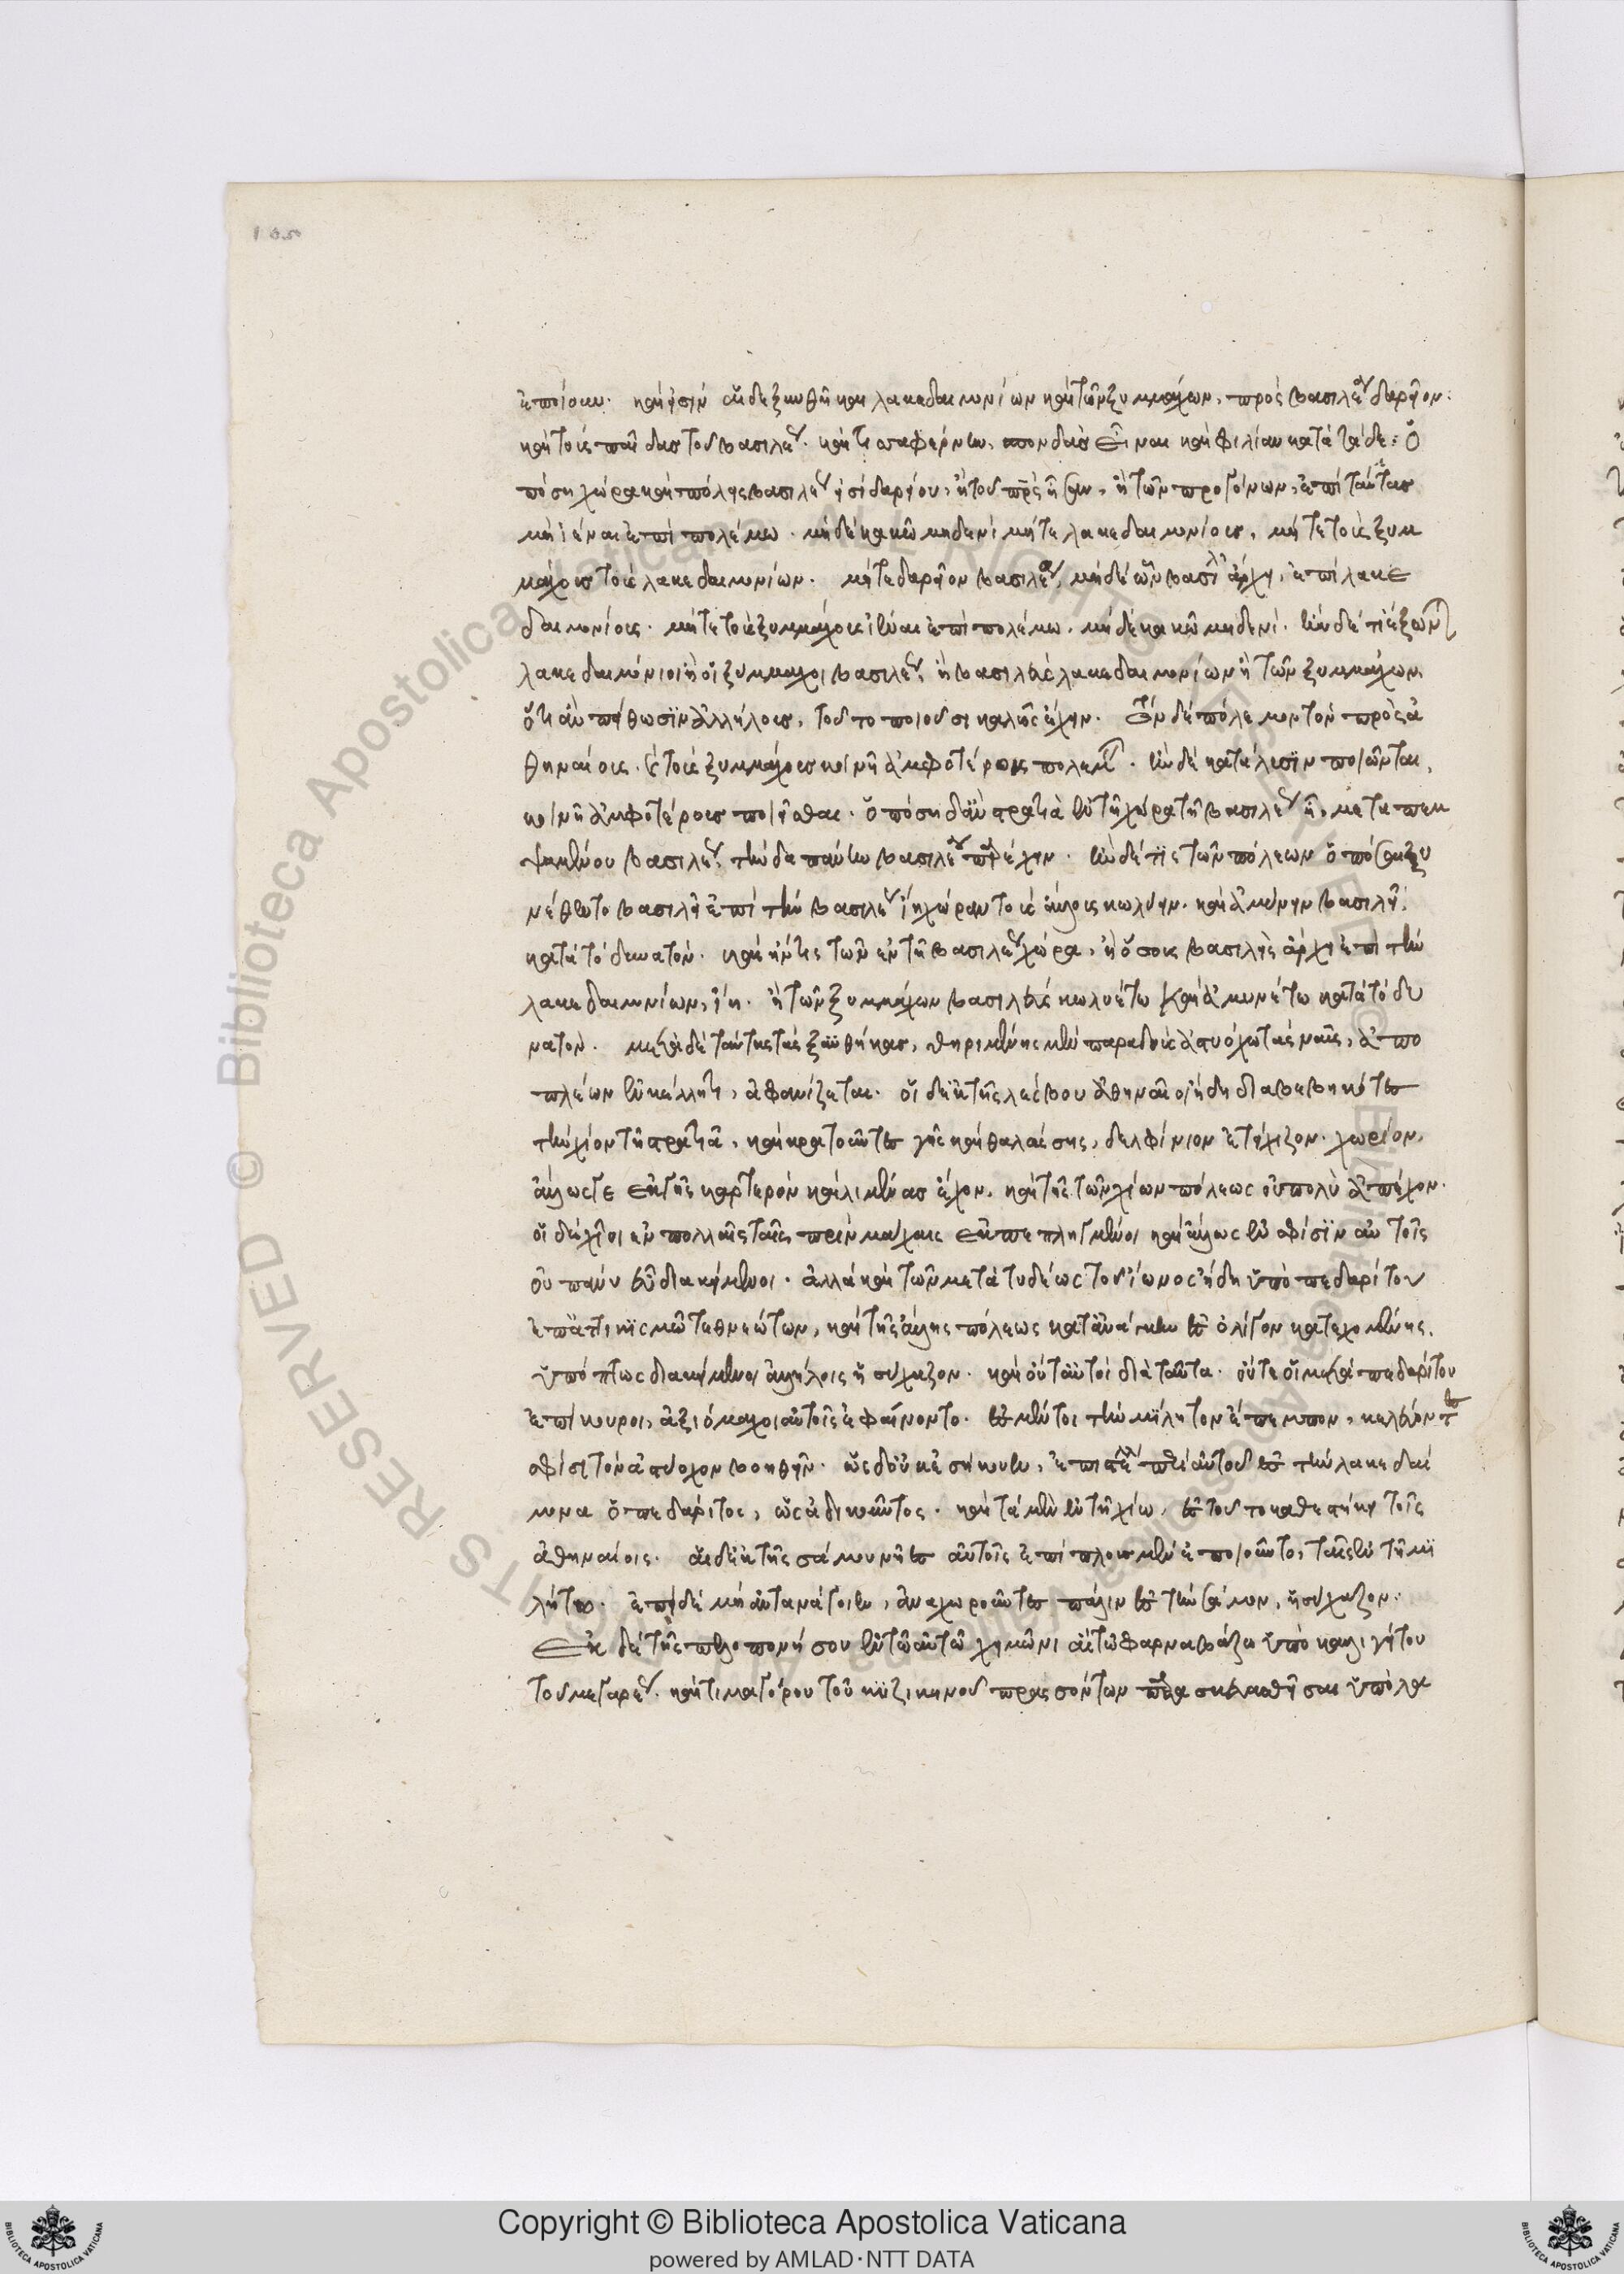 ἐποίουν. καὶ εἰσὶν αἵδε ξυνθῆκαι λακεδαιμονίων καὶ τῶν ξυμμάχων, πρὸς βασιλέα δαρεῖον:
καὶ τοὺς παῖδας τοῦ βασιλέως. καὶ τισσαφέρνην, σπονδὰς εἶναι καὶ φιλίαν κατὰ τάδε: ὁ
πόση χώρα καὶ πόλεις βασιλέως εἰσὶ δαρείου, ἢ τοῦ πρς ἦσαν, ἢ τῶν προγόνων, ἐπὶ ταύτας
μὴ ἰέναι ἐπὶ πολέμω. μηδὲ κακῶ μηδενὶ μήτε λακεδαιμονίους, μήτε τοὺς ξυμ
μάχους τοὺς λακεδαιμονίων. μήτε δαρεῖον βασιλέα, μηδὲ ὧν βασιλεὺς ἄρχει, ἐπὶ λακε
δαιμονίους. μήτε τοὺς ξυμμάχους ἰέναι ἐπὶ πολέμω. μηδὲ κακῶ μηδενί. ἢν δέ τι δέωνται
λακεδαιμόνιοι ἢ οἱ ξύμμαχοι βασιλέως, ἢ βασιλεὺς λακεδαιμονίων ἢ τῶν ξυμμάχων,
ὅτι ἂν πείθωσιν ἀλλήλους, τοῦτο ποιοῦσι καλῶς ἔχειν. τὸν δὲ πόλεμον τὸν πρὸς ἀ
θηναίους. καὶ τοὺς ξυμμάχους κοινῆ ἀμφοτέρους πολεμεῖν. ἢν δὲ κατάλυσιν ποιῶνται,
κοινῆ ἀμφοτέρους ποιεῖσθαι. ὁπόση δ' ἂν στρατιὰ ἐν τῆ χώρα τῆ βασιλέως ἦ, μεταπεμ
ψαμένου βασιλέως, τὴν δαπάνην βασιλέα παρέχειν. ἢν δέ τις τῶν πόλεων ὁπόσαι ξυ
νέθεντο βασιλεῖ ἐπὶ τὴν βασιλέως ἴη χώραν τοὺς ἄλλους κωλύειν. καὶ ἀμύνειν βασιλεῖ,
κατὰ τὸ δυνατόν. καὶ ἤν τις τῶν ἐν τῆ βασιλέως χώρα, ἢ ὅσοις βασιλεὺς ἄρχει ἐπὶ τὴν
λακεδαιμονίων, ἴη. ἢ τῶν ξυμμάχων βασιλεὺς κωλυέτω καὶ ἀμυνέτω κατὰ τὸ δυ
νατόν. μετὰ δὲ ταύτας τὰς ξυνθήκας, θηριμένης μὲν παραδοὺς ἀστυόχω τὰς ναῦς, ἀπο
πλέων ἐν κέλητι, ἀφανίζεται. οἱ δ' ἐκ τῆς λέσβου ἀθηναῖοι ἤδη διαβεβηκότες
τὴν χίον τῆ στρατιᾶ, καὶ κρατοῦντες γῆς καὶ θαλάσσης, δελφίνιον ἐτείχιζον. χωρίον,
ἄλλως τε ἐκ γῆς καρτερὸν καὶ λιμένας ἔχον. καὶ τῆς τῶν χίων πόλεως οὐ πολὺ ἀπέχον.
οἱ δὲ χῖοι ἐν πολλαῖς ταῖς πρὶν μάχαις ἐκπεπληγμένοι καὶ ἄλλως ἐν σφίσιν αὐτοῖς
οὐ πάνυ εὖ διακείμενοι. ἀλλὰ καὶ τῶν μετὰ τυδέως τοῦ ἴωνος ἤδη ὑπὸ πεδαρίτου
ἐπ' ἀττικισμῶ τεθνεώτων, καὶ τῆς ἄλλης πόλεως κατ' ἀνάγκην ἐς ὀλίγον κατεχομένης.
ὑπόπτως διακείμενοι ἀλλήλοις ἡσύχαζον. καὶ οὔτ' αὐτοὶ διὰ ταῦτα. οὔτε οἱ μετὰ πεδαρίτου
ἐπίκουροι, ἀξιόμαχοι αὐτοῖς ἐφαίνοντο. ἐς μέντοι τὴν μίλητον ἔπεμπον, κελεύοντες
σφίσι τὸν ἀστύοχον βοηθεῖν. ὡς δ' οὐκ ἐσήκουεν, ἐπιστέλλει περὶ αὐτοῦ ἐς τὴν λακεδαί
μονα ὁ πεδάριτος, ὡς ἀδικοῦντος. καὶ τὰ μὲν ἐν τῆ χίω, ἐς τοῦτο καθεστήκει τοῖς
ἀθηναίοις. αἱ δ' ἐκ τῆς σάμου νῆες αὐτοῖς ἐπίπλους μὲν ἐποιοῦντο, ταῖς ἐν τῆ μι
λήτω. ἐπεὶ δὲ μὴ ἀντανάγοιεν, ἀναχωροῦντες πάλιν ἐς τὴν σάμον, ἡσύχαζον.
Ἐκ δὲ τῆς πελοποννήσου ἐν τῶ αὐτῶ χειμῶνι αἱ τῶ φαρναβάζω ὑπὸ καλλιγείτου
τοῦ μεγαρέως. καὶ τιμαγόρου τοῦ κυζικηνοῦ πρασσόντων παρασκευασθεῖσαι ὑπὸ λα
Copyright © Biblioteca Apostolica Vaticana
powered by AMLAD·NTT DATA